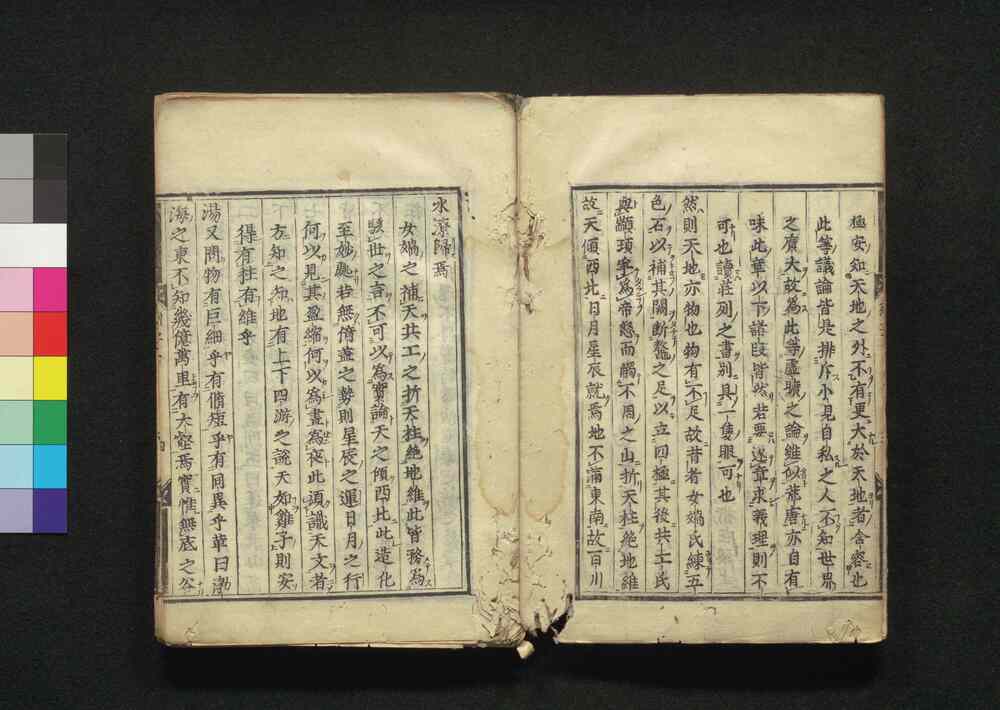 極安知天地之外不有更大於天地者含容也
此等議論皆是排斥小見自私之人不知世界
之廣大故為此等虛曠之論雖似荒唐亦自有
味此章以下諸段皆然若要逐章求義理則不
可也讀莊列之書別具一隻眼可也
然則天地亦物也物有不足故昔者女媧氏練五
色石以補其闕斷鼇之足以立四極其後共工氏
與顓頊爭為帝怒而觸不周之山折天柱絕地維
故天傾西北日月星辰就焉地不滿東南故百川
水潦歸焉
女媧之補天共工之折天柱絕地維此皆務為
駭世之言不可以為實論天之傾西北此造化
至妙處若無偏盖之勢則星辰之運日月之行
何以見其盈縮何以為晝為夜此須識天文者
方知之知地有上下四游之說天如雞子則安
得有柱有維乎
湯又問物有巨細乎有脩短乎有同異乎革曰渤
海之東不知幾億萬里有大壑焉實惟無底之谷